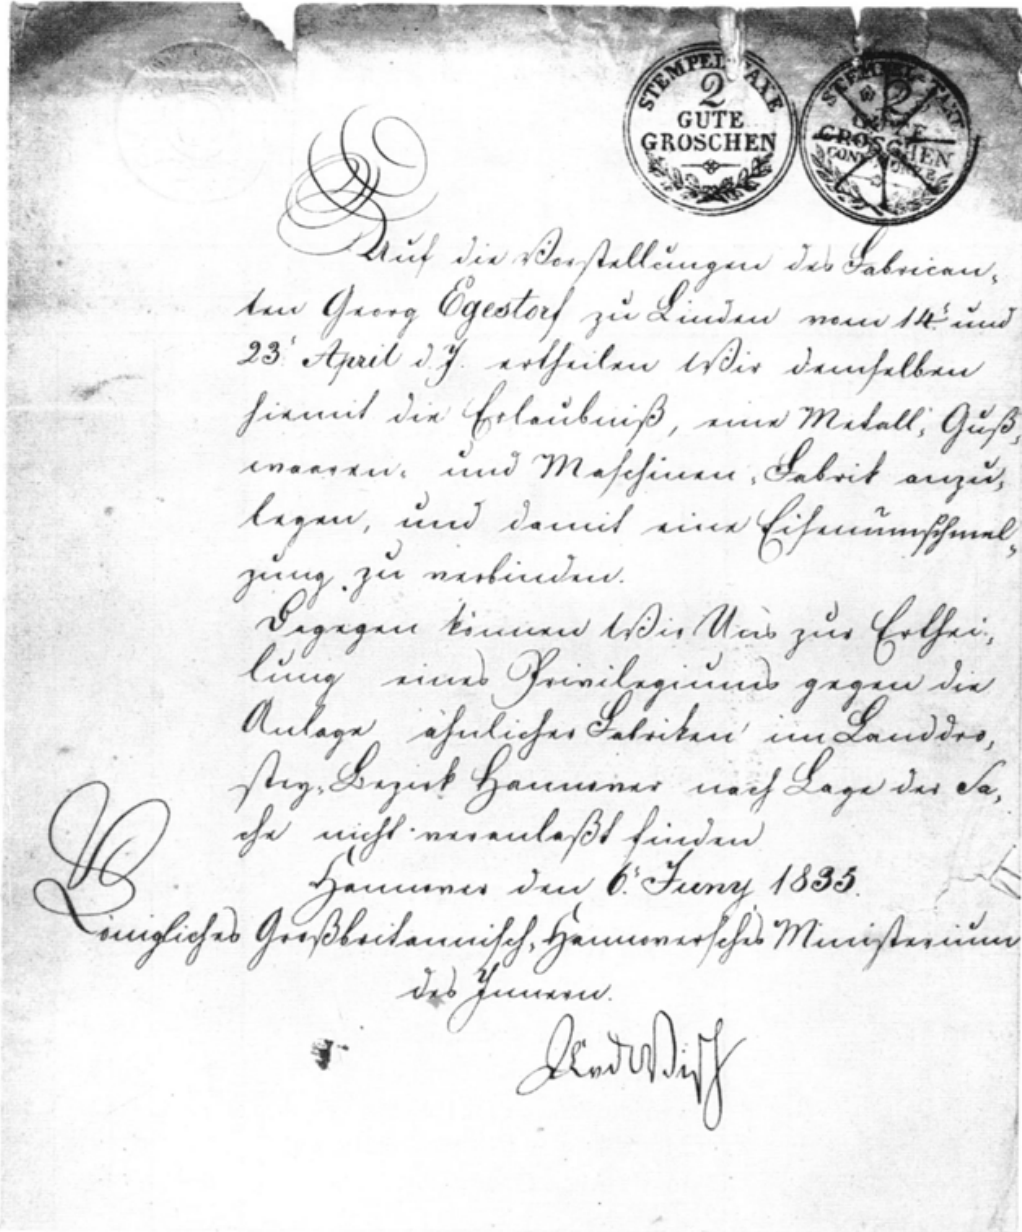 STEMPEL TAXE
2
GUTE
GROSCHEN
STEMPEL TAXE
2
GUTE
GROSCHEN
Auf die Vorstellungen des Fabrican-
ten Georg Egestorf zu Linden vom 14t und
23t April d. J. ertheilen Wir demselben
hiemit die Erlaubniß, eine Metall-, Guß-
waaren- und Maschinen-Fabrik anzu-
legen, und damit eine Eisenumschmel-
zung zu verbinden.
Dagegen können Wir Uns zur Erthei-
lung eines Privilegiums gegen die
Anlage ähnlicher Fabriken im Landdro-
stey-Bezirk Hannover nach Lage der Sa-
che nicht veranlaßt finden.
Hannover den 6t Juny 1835.
Königliches Großbritannisch-Hannoversches Ministerium
des Innern.